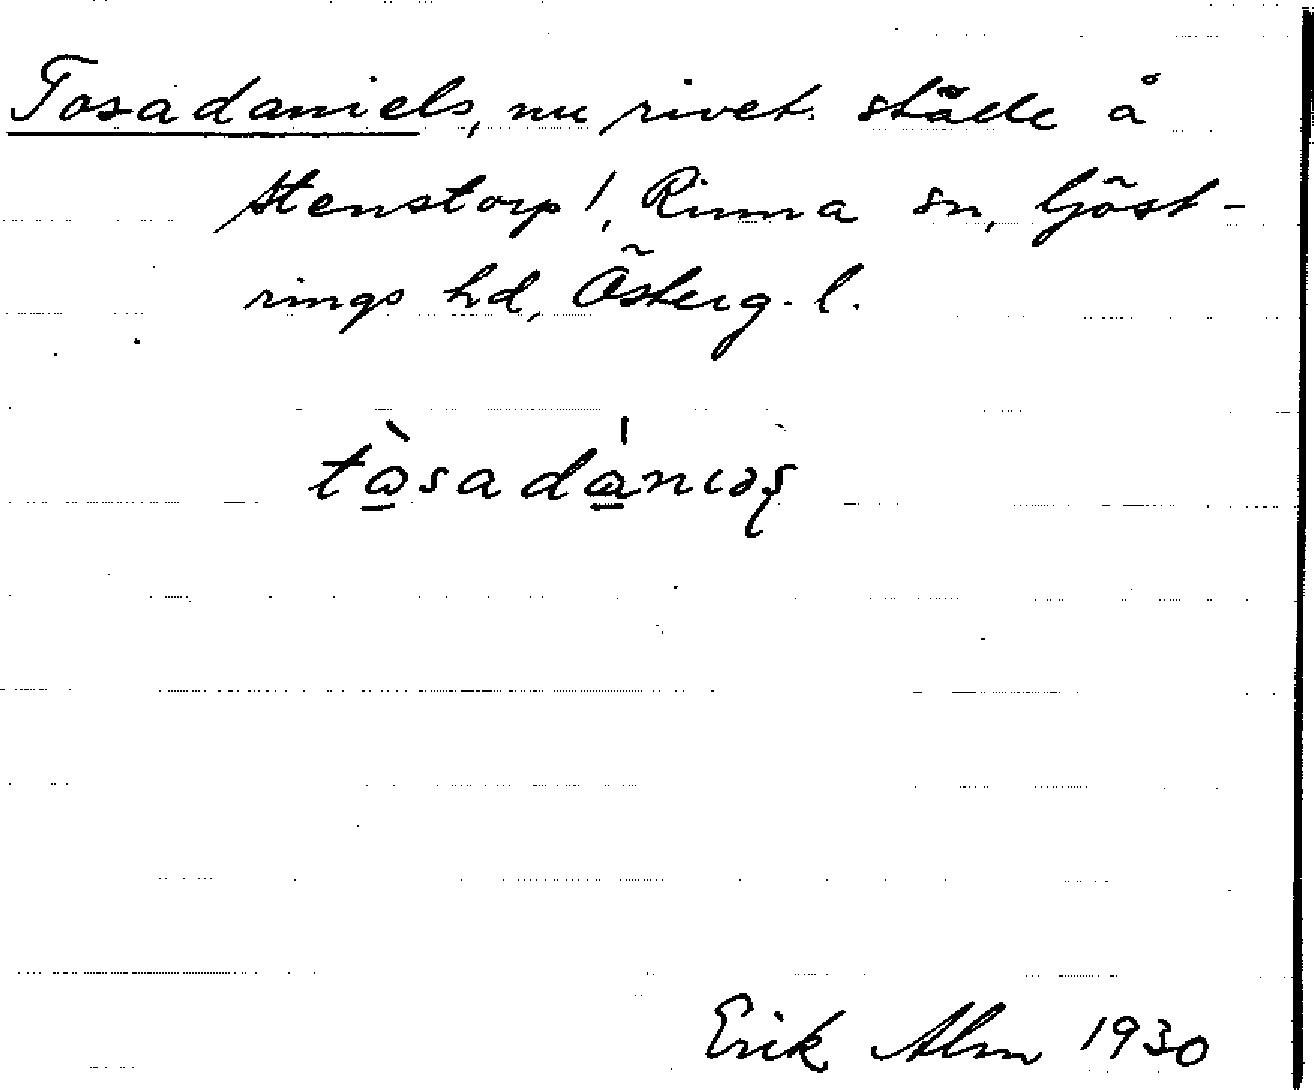 Tosadaniels, nu rivet ställe å
Stenstorp!, Rinna sn, Göst-
rings hd, Österg. l.
tòsadánɩəʂ
Erik Alm 1930